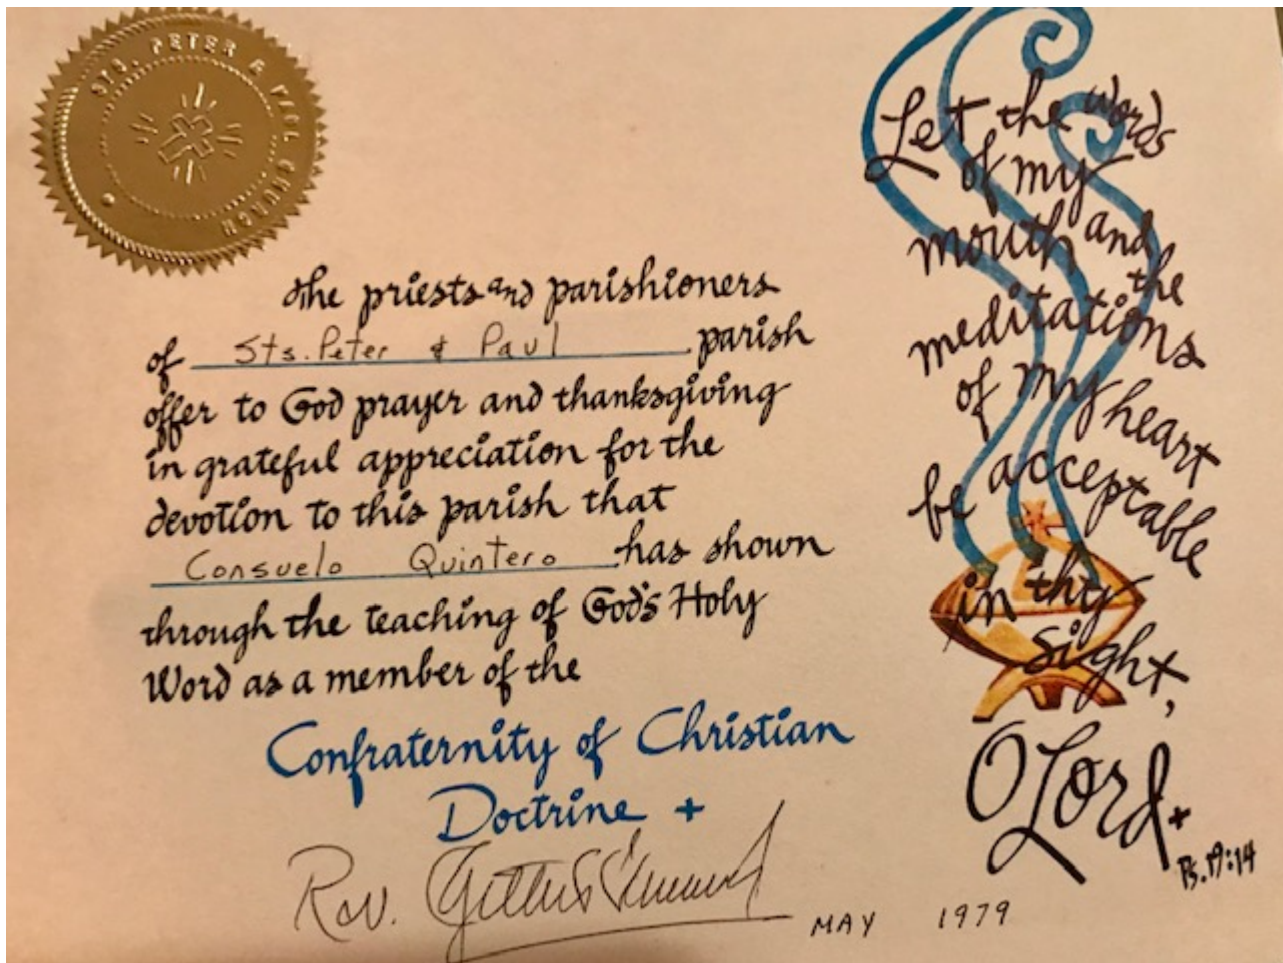 STS. PETER & PAUL CHURCH
The priests and parishioners
of Sts. Peter & Paul parish
offer to God prayer and thanksgiving
in grateful appreciation for the
devotion to this parish that
Consuelo Quintero has shown
through the teaching of God's Holy
Word as a member of the
Confraternity of Christian
Doctrine +
Rev.
MAY 1979
Let the words
of my
mouth and
the
meditations
of my heart
be acceptable
in thy
sight,
O Lord. +
Ps. 19:14